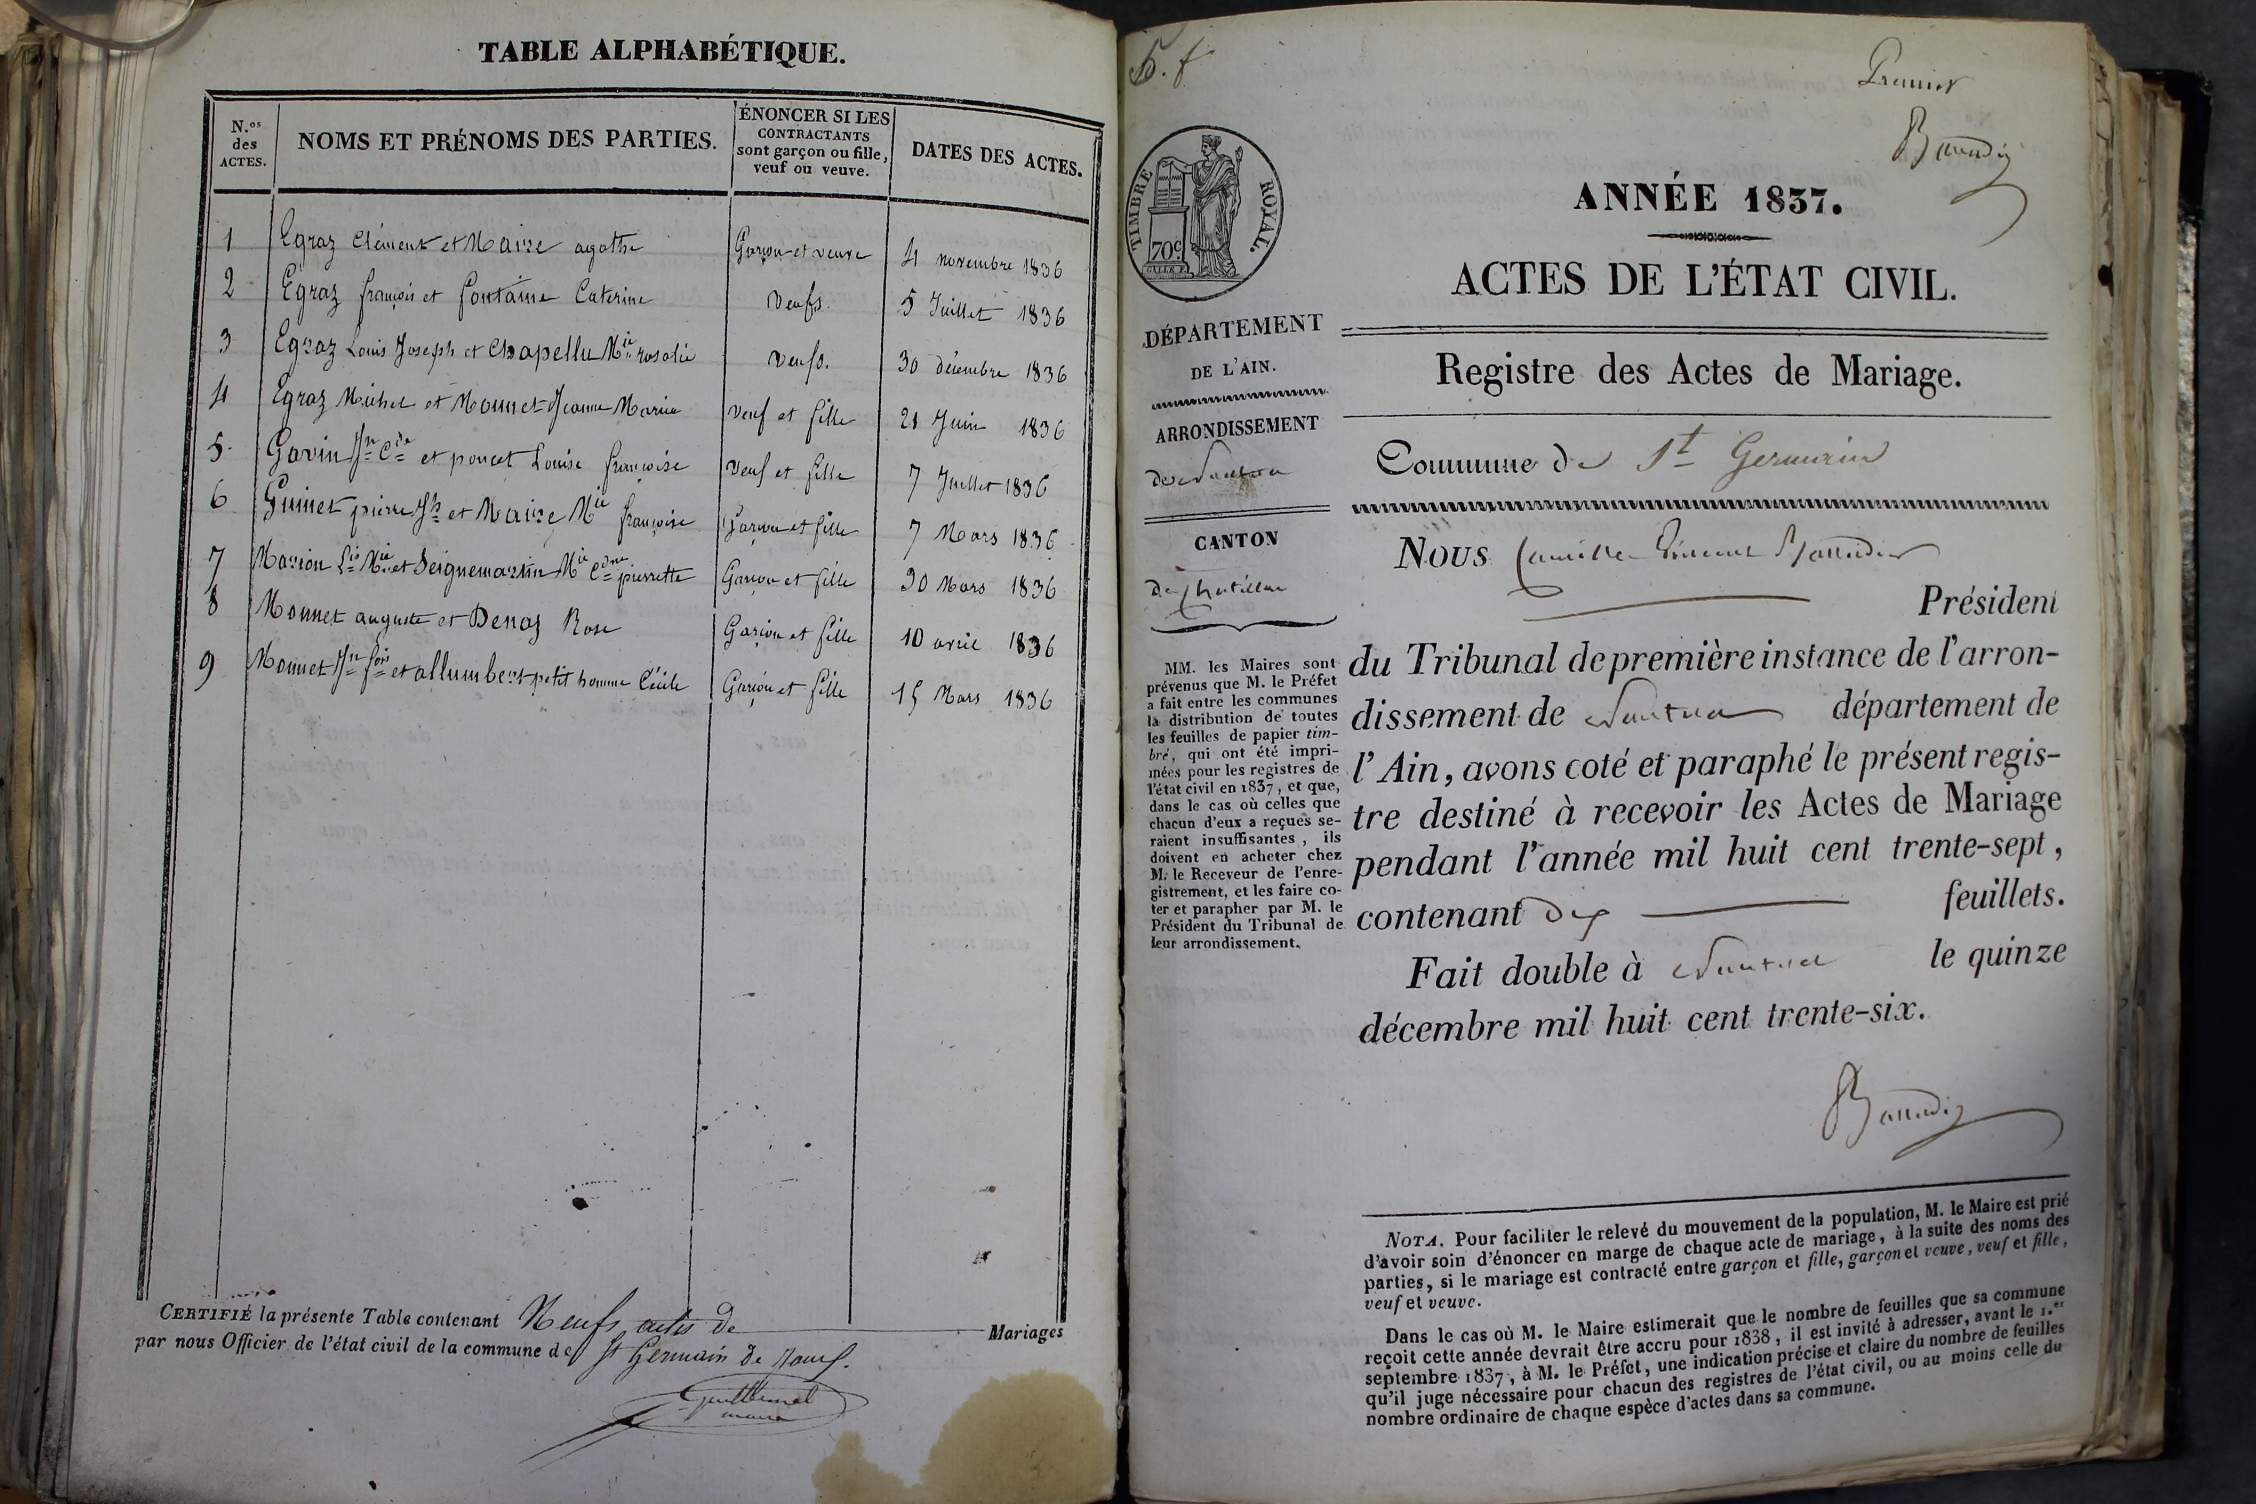 TABLE ALPHABÉTIQUE.
N.os des ACTES.
NOMS ET PRÉNOMS DES PARTIES.
ÉNONCER SI LES CONTRACTANTS sont garçon ou fille, veuf ou veuve.
DATES DES ACTES.
1 Egraz Clément et Maire agathe Garçon et veuve 4 novembre 1836
2 Egraz françois et fontaine Caterine veufs. 5 Juillet 1836
3 Egraz Louis Joseph et Chapellu Mie rosalie veufs. 30 décembre 1836
4 Egraz Michel et Monnet Jeanne Marie veuf et fille 21 Juin 1836
5 Gavin Jn Cde et poncet Louise françoise veuf et fille 7 Juillet 1836
6 Guinet pierre Jh et Maire Mie françoise Garçon et fille 7 Mars 1836
7 Marion Mie et Seignemartin Mie Cdne pierrette Garçon et fille 30 Mars 1836
8 Monnet auguste et Denaz Rose Garçon et fille 10 avril 1836
9 Monnet Jn fois et allumbert petit homme Cécile Garçon et fille 15 Mars 1836
CERTIFIÉ la présente Table contenant Neufs actes de Mariages
par nous Officier de l'état civil de la commune de St Germain de Joux.
maire
Premier
ANNÉE 1837.
TIMBRE ROYAL.
70c
ACTES DE L'ÉTAT CIVIL.
DÉPARTEMENT
DE L'AIN.
ARRONDISSEMENT
de Nantua
CANTON
de Chatillon
MM. les Maires sont
prévenus que M. le Préfet
a fait entre les communes
la distribution de toutes
les feuilles de papier tim-
bré, qui ont été impri-
mées pour les registres de
l'état civil en 1837, et que,
dans le cas où celles que
chacun d'eux a reçues se-
raient insuffisantes, ils
doivent en acheter chez
M. le Receveur de l'enre-
gistrement, et les faire co-
ter et parapher par M. le
Président du Tribunal de
leur arrondissement.
Registre des Actes de Mariage.
Commune de St Germain
Nous Camille Vincent
Président
du Tribunal de première instance de l'arron-
dissement de Nantua département de
l'Ain, avons coté et paraphé le présent regis-
tre destiné à recevoir les Actes de Mariage
pendant l'année mil huit cent trente-sept,
contenant dix feuillets.
Fait double à Nantua le quinze
décembre mil huit cent trente-six.
NOTA. Pour faciliter le relevé du mouvement de la population, M. le Maire est prié
d'avoir soin d'énoncer en marge de chaque acte de mariage, à la suite des noms des
parties, si le mariage est contracté entre garçon et fille, garçon et veuve, veuf et fille,
veuf et veuve.
Dans le cas où M. le Maire estimerait que le nombre de feuilles que sa commune
reçoit cette année devrait être accru pour 1838, il est invité à adresser, avant le 1.er
septembre 1837, à M. le Préfet, une indication précise et claire du nombre de feuilles
qu'il juge nécessaire pour chacun des registres de l'état civil, ou au moins celle du
nombre ordinaire de chaque espèce d'actes dans sa commune.